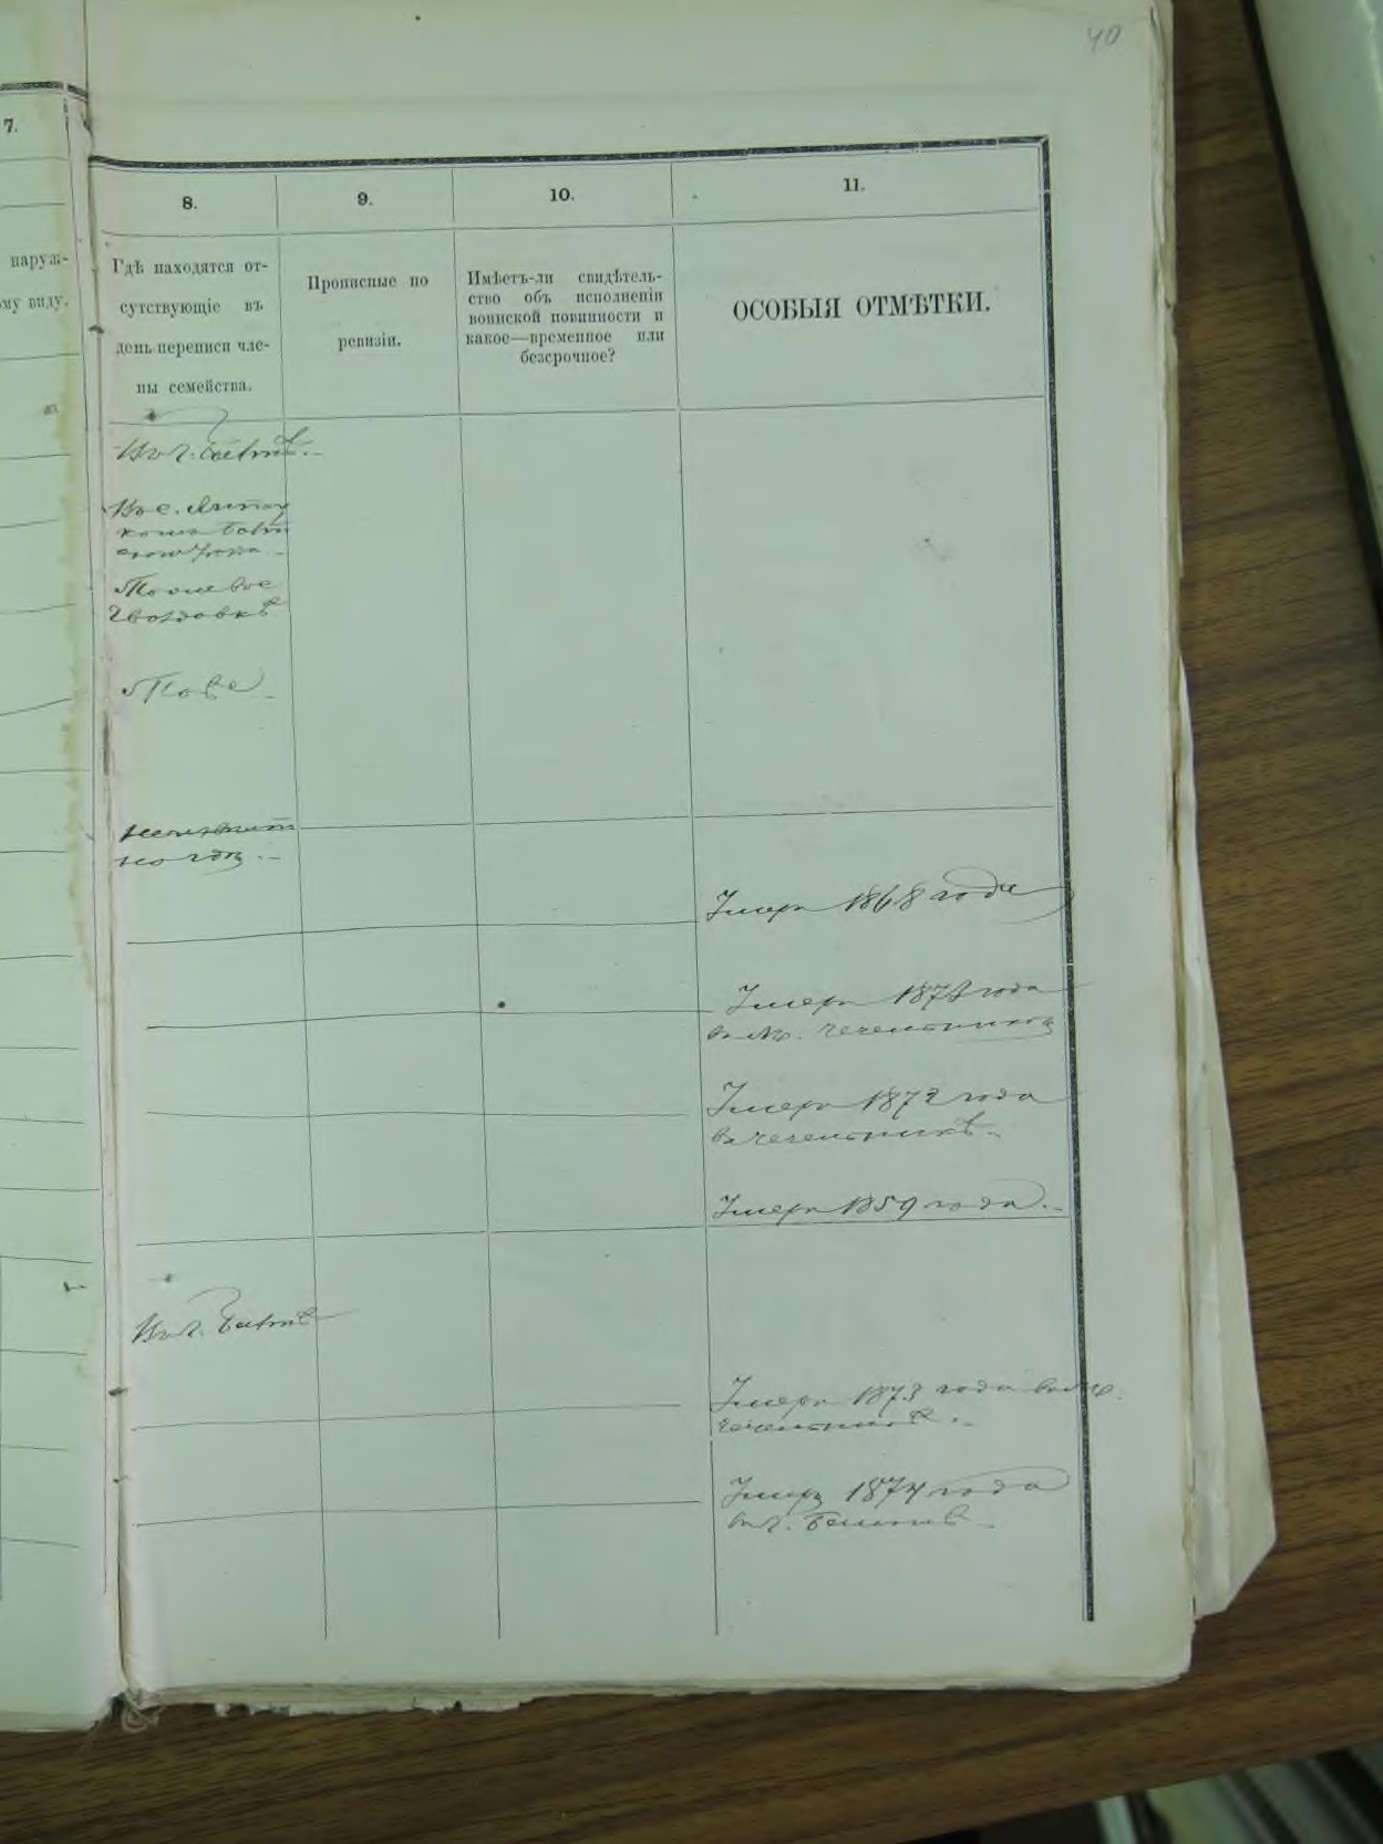 40
7.
наруж-
ому виду.
8.
9.
10.
11.
Гдѣ находятся от-
сутствующіе въ
день переписи чле-
ны семейства.
Прописные по
ревизіи.
Имѣетъ-ли свидѣтель-
ство объ исполненіи
воинской повинности и
какое—временное или
безсрочное?
ОСОБЫЯ ОТМѢТКИ.
Въ г. Балтѣ.
Въ с.
Гвоздовкѣ
Умеръ 1868 года
Умеръ года
въ м.
Умеръ 1872 года
въ Чечельникѣ.
Умеръ 1859 года.
Въ г. Балтѣ
Умеръ 1873 года въ м.
Чечельникѣ.
Умеръ 1874 года
въ г.